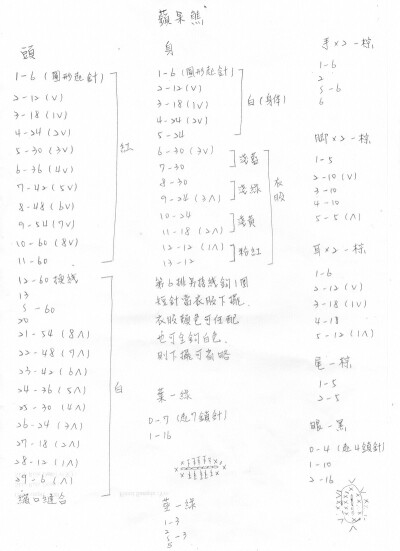 蘋果熊
頭
1-6 (圓形起針)
2-12 (V)
3-18 (1V)
4-24 (2V)
5-30 (3V)
6-36 (4V)
7-42 (5V)
8-48 (6V)
9-54 (7V)
10-60 (8V)
11-60
紅
12-60 換線
13
S-60
20
21-54 (8Λ)
22-48 (7Λ)
23-42 (6Λ)
24-36 (5Λ)
25-30 (4Λ)
26-24 (3Λ)
27-18 (2Λ)
28-12 (1Λ)
29-6 (Λ)
縮口縫合
白
身
1-6 (圓形起針)
2-12 (V)
3-18 (1V)
4-24 (2V)
5-24
白(身体)
6-30 (3V)
7-30
淺藍
8-30
9-24 (3Λ)
淺綠
10-24
11-18 (2Λ)
淺黃
12-12 (1Λ)
13-12
粉紅
衣服
第6排另接線鉤1圈
短針當衣服下擺.
衣服換色可任配
也可全鉤白色.
則下擺可省略
葉-綠
0-7 (起7鎖針)
1-16
莖-綠
1-3
2
S-3
5
手×2-棕
1-6
2
S-6
6
腳×2-棕
1-5
2-10 (V)
3-10
4-10
5-5 (Λ)
耳×2-棕
1-6
2-12 (V)
3-18 (1V)
4-18
5-12 (1Λ)
尾-棕
1-5
2-5
眼-黑
0-4 (起4鎖針)
1-10
2-16